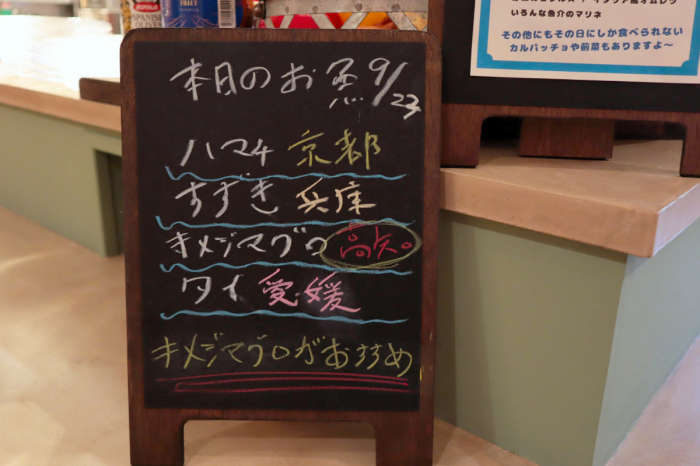 本日のお魚 9/23
ハマチ 京都
すずき 兵庫
キメジマグロ 高知
タイ 愛媛
キメジマグロがおすすめ
いろんな魚介のマリネ
その他にもその日にしか食べられない
カルパッチョや前菜もありますよ～